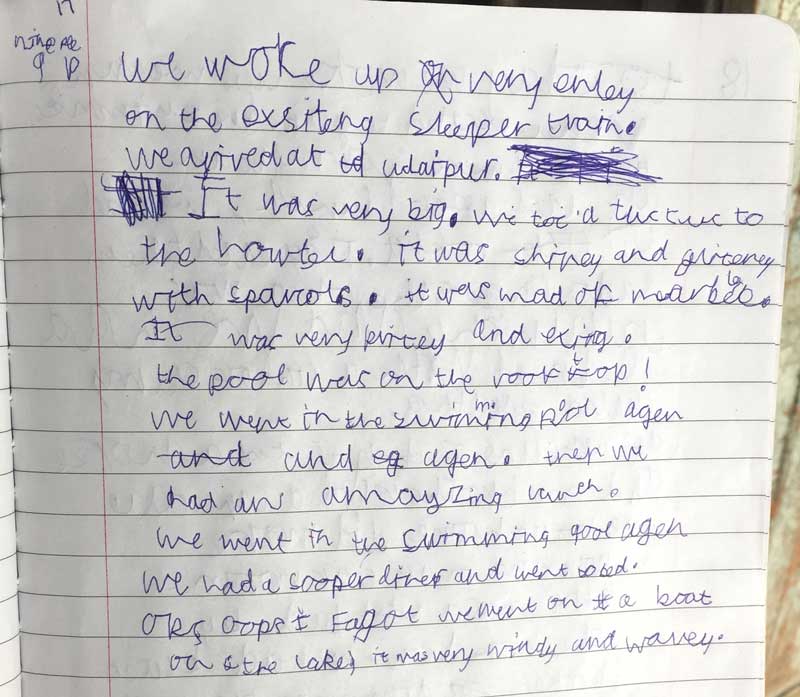 17
nine pe
9 p
we woke up very enley
on the exsiteng sleeper train.
we arived at to udaipur.
It was very big. we too'd a tuctuc to
the howter. it was shiney and gliteney
with sparcols. it was mad of marble.
It was very pritey and exing.
the pool was on the roof top!
we went in the swimming pool agen
and and eg agen. then we
had an amayzing lunch.
we went in the swimming pool agen
we had a sooper diner and went to bed.
oks oops I Fagot we went on a boat
on the lake, it was very windy and wavey.